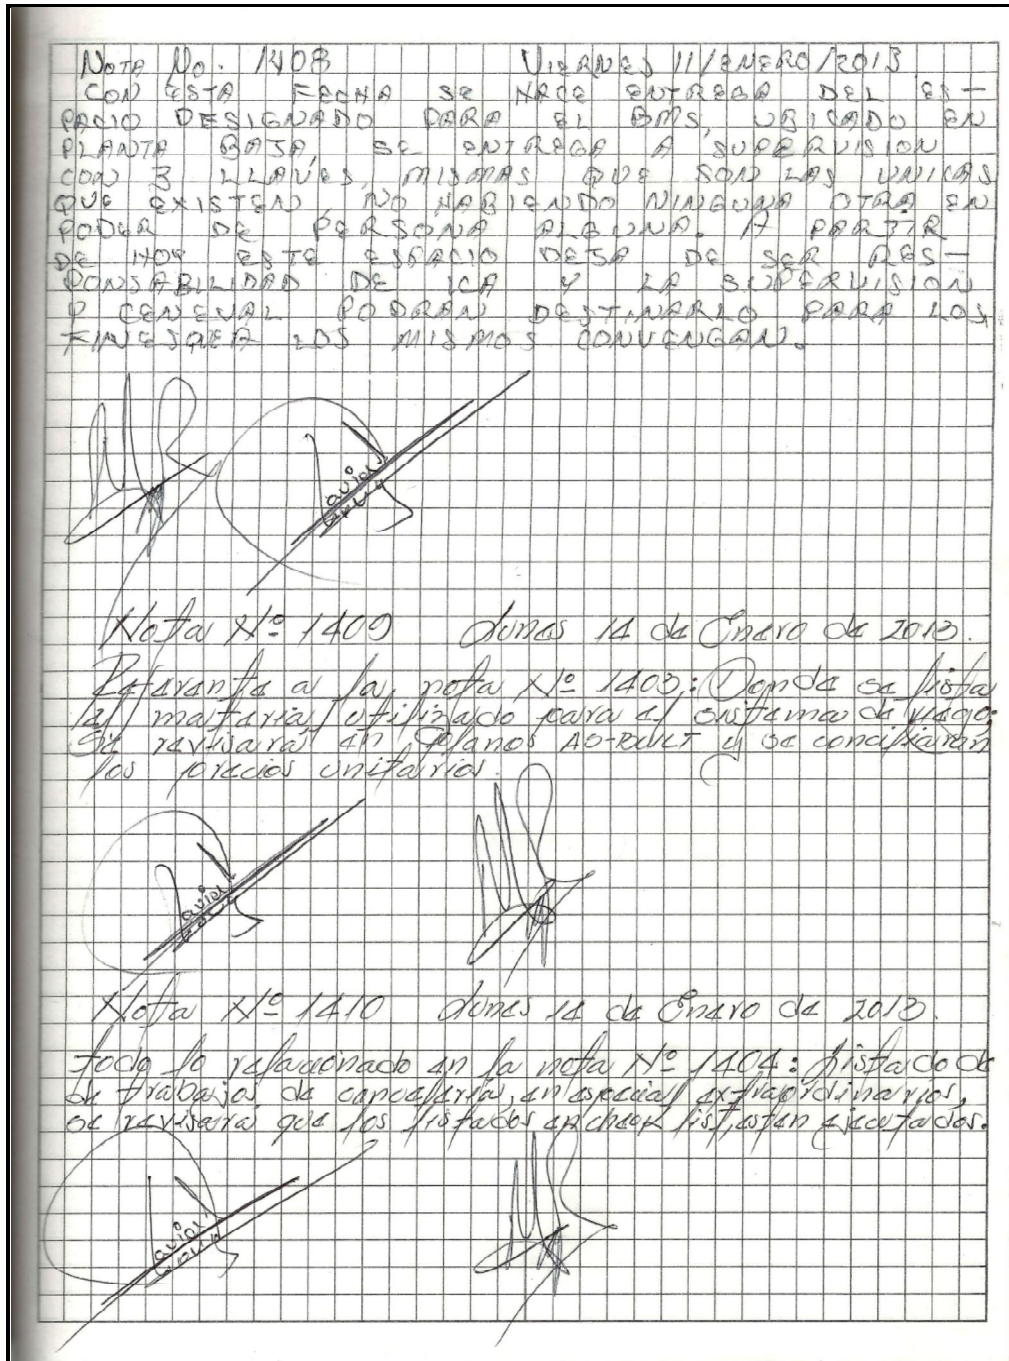 NOTA No. 1408 VIERNES 11/ENERO/2013
CON ESTA FECHA SE HACE ENTREGA DEL ES-
PACIO DESIGNADO PARA EL BMS, UBICADO EN
PLANTA BAJA, SE ENTREGA A SUPERVISION
CON 3 LLAVES, MISMAS QUE SON LAS UNICAS
QUE EXISTEN, NO HABIENDO NINGUNA OTRA EN
PODER DE PERSONA ALGUNA. A PARTIR
DE HOY ESTE ESPACIO DEJA DE SER RES-
PONSABILIDAD DE ICA Y LA SUPERVISION
Y CENEVAL PODRAN DESTINARLO PARA LOS
FINES QUE A LOS MISMOS CONVENGAN.
Javier
Nota Nº 1409 Lunes 14 de Enero de 2013.
Referente a la nota Nº 1403: Donde se lista
el material utilizado para el sistema de riego:
Se revisará en Planos AS-BUILT y se conciliarán
los precios unitarios.
Javier
Nota Nº 1410 Lunes 14 de Enero de 2013.
Todo lo relacionado en la nota Nº 1404: Listado de
de trabajos de cancelería, en especial extraordinarios,
se revisará que los listados en check list, esten ejecutados.
Javier